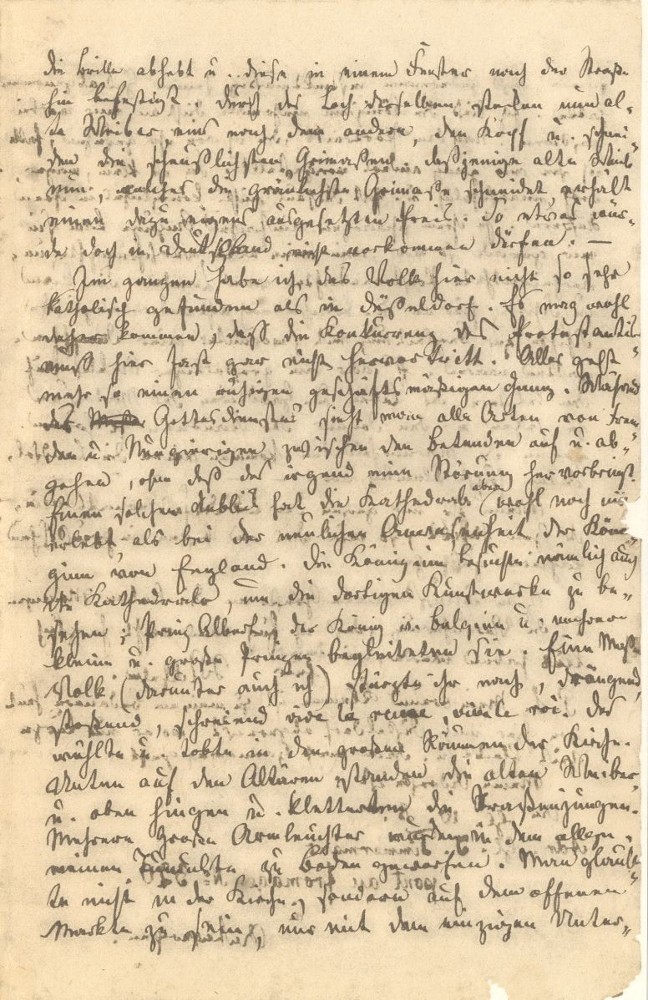 die Brille abhebt u. diese, in einem Fenster nach der Straße
hin befestigt. Durch das Loch derselben stecken nun al-
te Weiber eins nach dem andern, den Kopf u. schnei-
den die scheußlichsten Grimassen. dasjenige alte Weib
nun, welches die gräulichste Grimasse schneidet erhält
einen dazu eigens ausgesetzten Preis. So etwas wür-
de doch in Deutschland nicht vorkommen dürfen. —
Im ganzen habe ich das Volk hier nicht so sehr
katholisch gefunden als in Düßeldorf. Es mag wohl
daher kommen, daß die Konkurrenz des Protestantis-
muß hier fast gar nicht hervortritt. Alles geht
mehr so einen ruhigen geschäftsmäßigen Gang. Während
des Gottesdienstes sieht man alle Arten von Frem-
den u. Neugierigen zwischen den Betenden auf u. ab-
gehen, ohne daß das irgend eine Störung hervorbringt.
Einen solchen Anblick hat die Kathedrale aber wohl noch nie
erlebt als bei der neulichen Anwesenheit der Köni-
ginn von England. Die Königinn besuchte nämlich auch
die Kathedrale, um die dortigen Kunstwerke zu be-
sehen; Prinz Albert, der König v. Belgien u. mehrere
kleine u. große Prinzen begleiteten sie. Eine Masse
Volk (darunter auch ich) stürzte ihr nach, drängend,
stoßend, schreiend vive la reine, vive le roi. Das
wühlte u. tobte in den großen Räumen der Kirche.
Unten auf den Altären standen die alten Weiber
u. oben hingen u. kletterten die Straßenjungen.
Mehrere große Armleuchter wurden in dem allge-
meinen Tumulte zu Boden geworfen. Man glaub-
te nicht in der Kirche, sondern auf dem offenen
Markte zu sein, nur mit dem einzigen Unter-